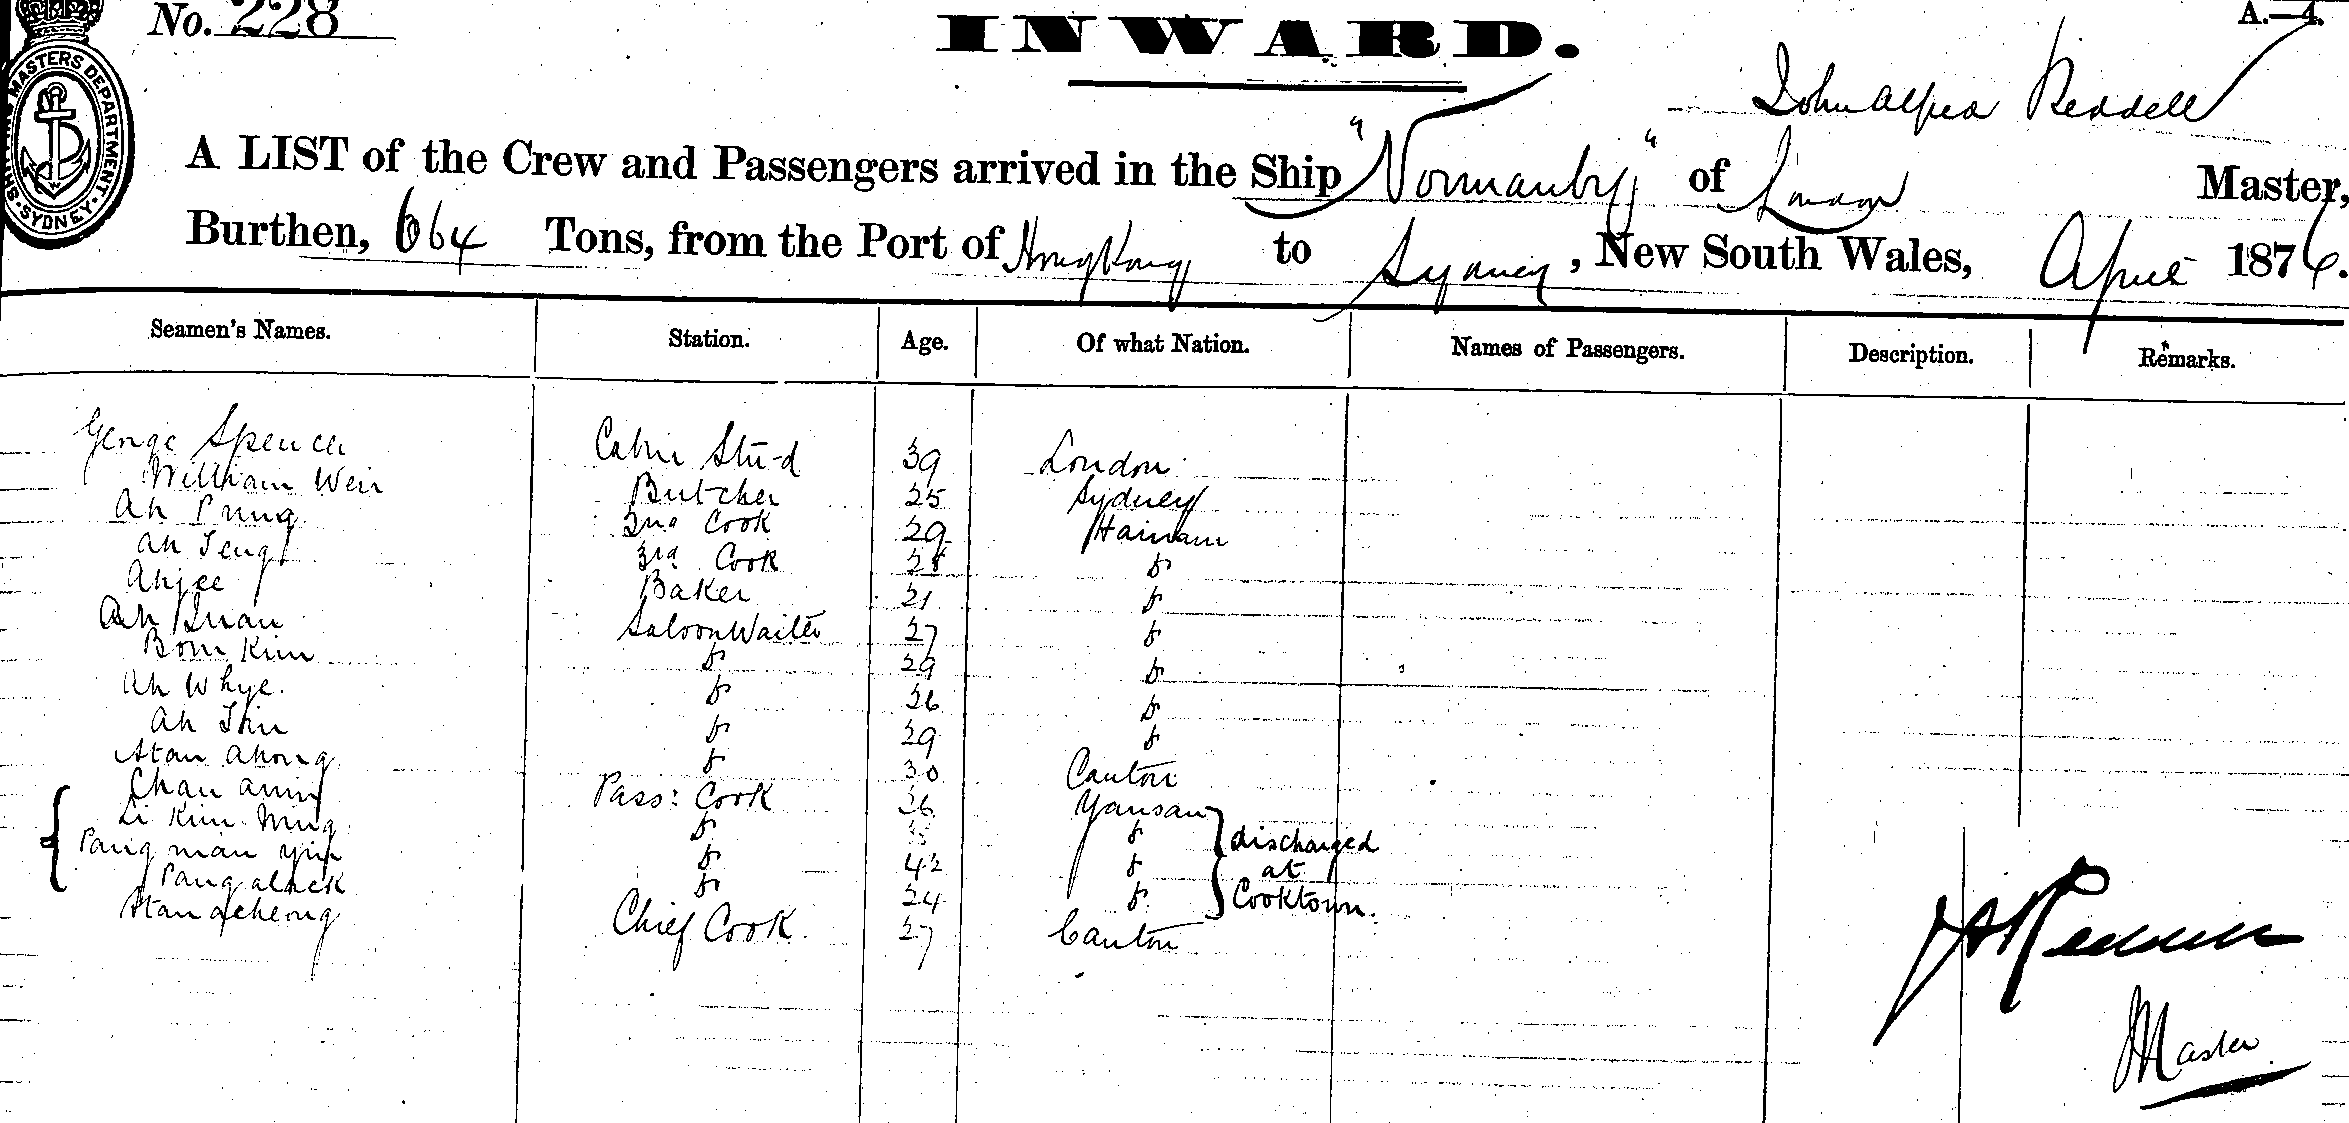 No. 228
INWARD.
A.—4.
SHIPPING MASTERS DEPARTMENT SYDNEY
John Alfred Reddell
A LIST of the Crew and Passengers arrived in the Ship "Normanby" of London Master,
Burthen, 664 Tons, from the Port of Hong Kong to Sydney, New South Wales, April 1876.
Seamen's Names. Station. Age. Of what Nation. Names of Passengers. Description. Remarks.
George Spencer Cabin Stu-d 39 London
William Weir Butcher 25 Sydney
Ah Pung 2nd Cook 29 Hainam
Ah Teng 3rd Cook 28 do
Ahjee Baker 21 do
Ah Quan Saloon Waiter 27 do
Bom Kim do 29 do
Ah Whye. do 26 do
Ah Shin do 29 do
Atan Ahong do 30 Canton
Chan Aning Pass: Cook 36 Yansan
Li Kim Ming do do discharged
Pang man yin do 42 do at
Pang alack do 24 do Cooktown.
Atan acheong Chief Cook 27 Canton
JAReddell
Master